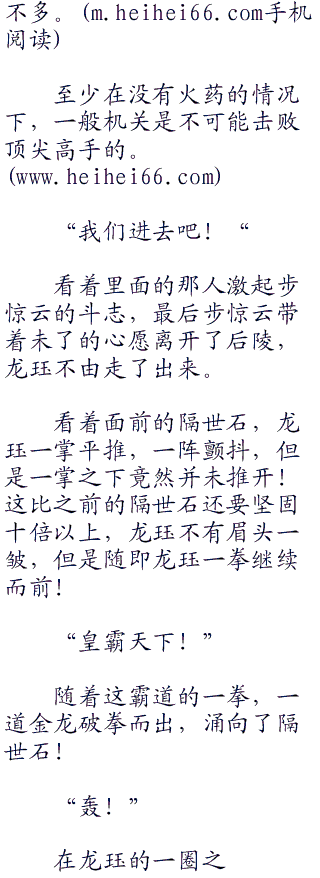 不多。(m.heihei66.com手机
阅读)
至少在没有火药的情况
下，一般机关是不可能击败
顶尖高手的。
(www.heihei66.com)
“我们进去吧！“
看着里面的那人激起步
惊云的斗志，最后步惊云带
着未了的心愿离开了后陵，
龙珏不由走了出来。
看着面前的隔世石，龙
珏一掌平推，一阵颤抖，但
是一掌之下竟然并未推开！
这比之前的隔世石还要坚固
十倍以上，龙珏不有眉头一
皱，但是随即龙珏一拳继续
而前！
“皇霸天下！”
随着这霸道的一拳，一
道金龙破拳而出，涌向了隔
世石！
“轰！”
在龙珏的一圈之